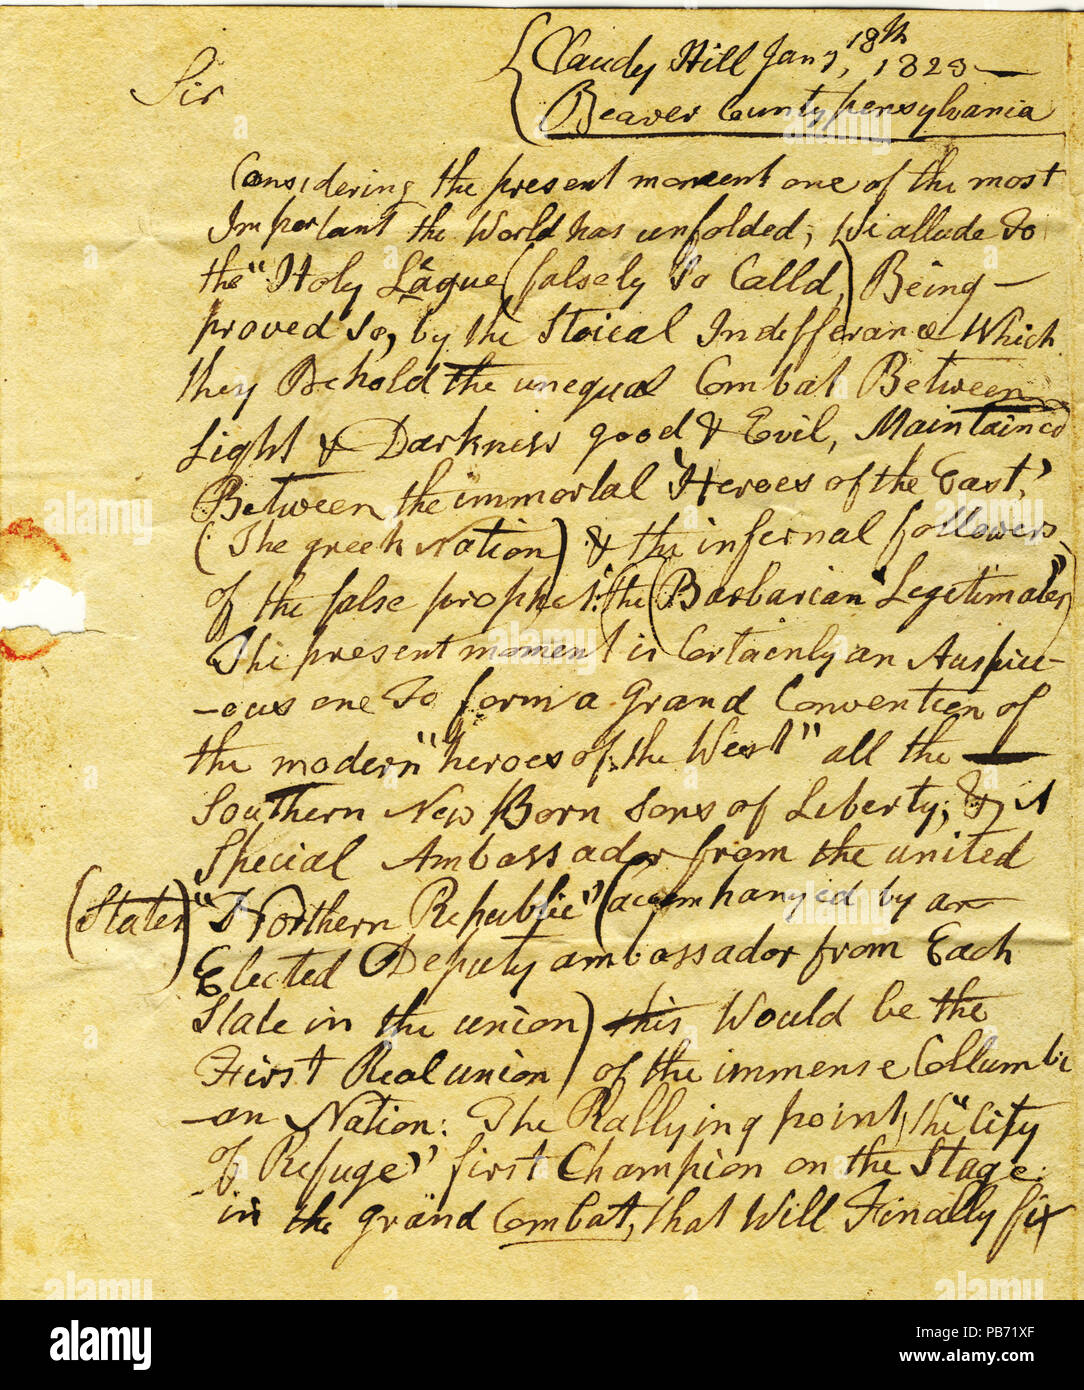 Jany, 18th 1823 —
Sir
Beaver County pensylvania
Considering the present moment one of the most
Important the World has unfolded; We allude To
the "Holy Lague (falsely So Calld,) Being —
proved So, by the Stoical Indifferance Which
they Behold the unequal Combat Between
Light & Darkness good & Evil, Maintained
Between the immortal 'Heroes of the East,'
(The greek Nation) & the infernal followers
of the false prophet: (the (Barbarian "Legitimates")
The present moment is Certainly an Auspici-
-ous one To form a Grand Convention of
the modern "heroes of the West" all the —
Southern New Born Sons of Liberty; & A
Special Ambassador from the united
(States) "Northern Republic" (accomphanyed by an
Elected Deputy ambassador from Each
State in the union) this Would be the
First Real union of the immense Collumbi
-an Nation: The Rallying point, the "City
of Refuge" first Champion on the Stage
in the grand Combat, that Will Finally fix
alamy
Image ID: PB71XF
www.alamy.com